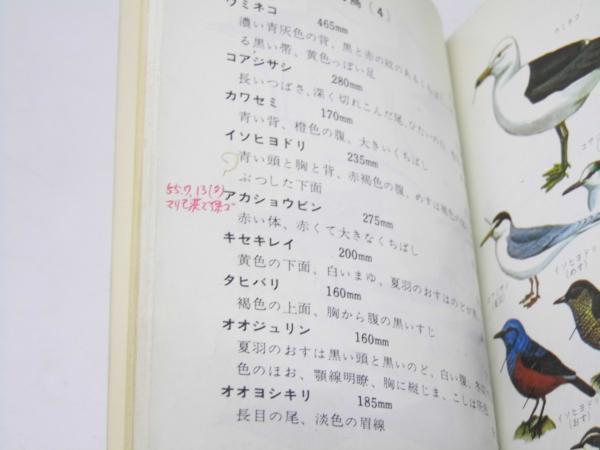 の鳥(4)
ウミネコ 465mm
濃い青灰色の背、黒と赤の紋のあるくちばし
る黒い帯、黄色っぽい足
コアジサシ 280mm
長いつばさ、深く切れこんだ尾、ひたいの白
カワセミ 170mm
青い背、橙色の腹、大きいくちばし
イソヒヨドリ 235mm
青い頭と胸と背、赤褐色の腹、めすは褐色の
ぶつした下面
55.7.13(日)
アカショウビン 275mm
赤い体、赤くて大きなくちばし
キセキレイ 200mm
黄色の下面、白いまゆ、夏羽のおすはのどが黒
タヒバリ 160mm
褐色の上面、胸から腹の黒いすじ
オオジュリン 160mm
夏羽のおすは黒い頭と黒いのど、白い腹、
色のほお、顎線明瞭、胸に縦じま、こしは灰色
オオヨシキリ 185mm
長目の尾、淡色の眉線
ウミネコ
イソヒヨドリ
(めす)
イソヒヨドリ
(おす)